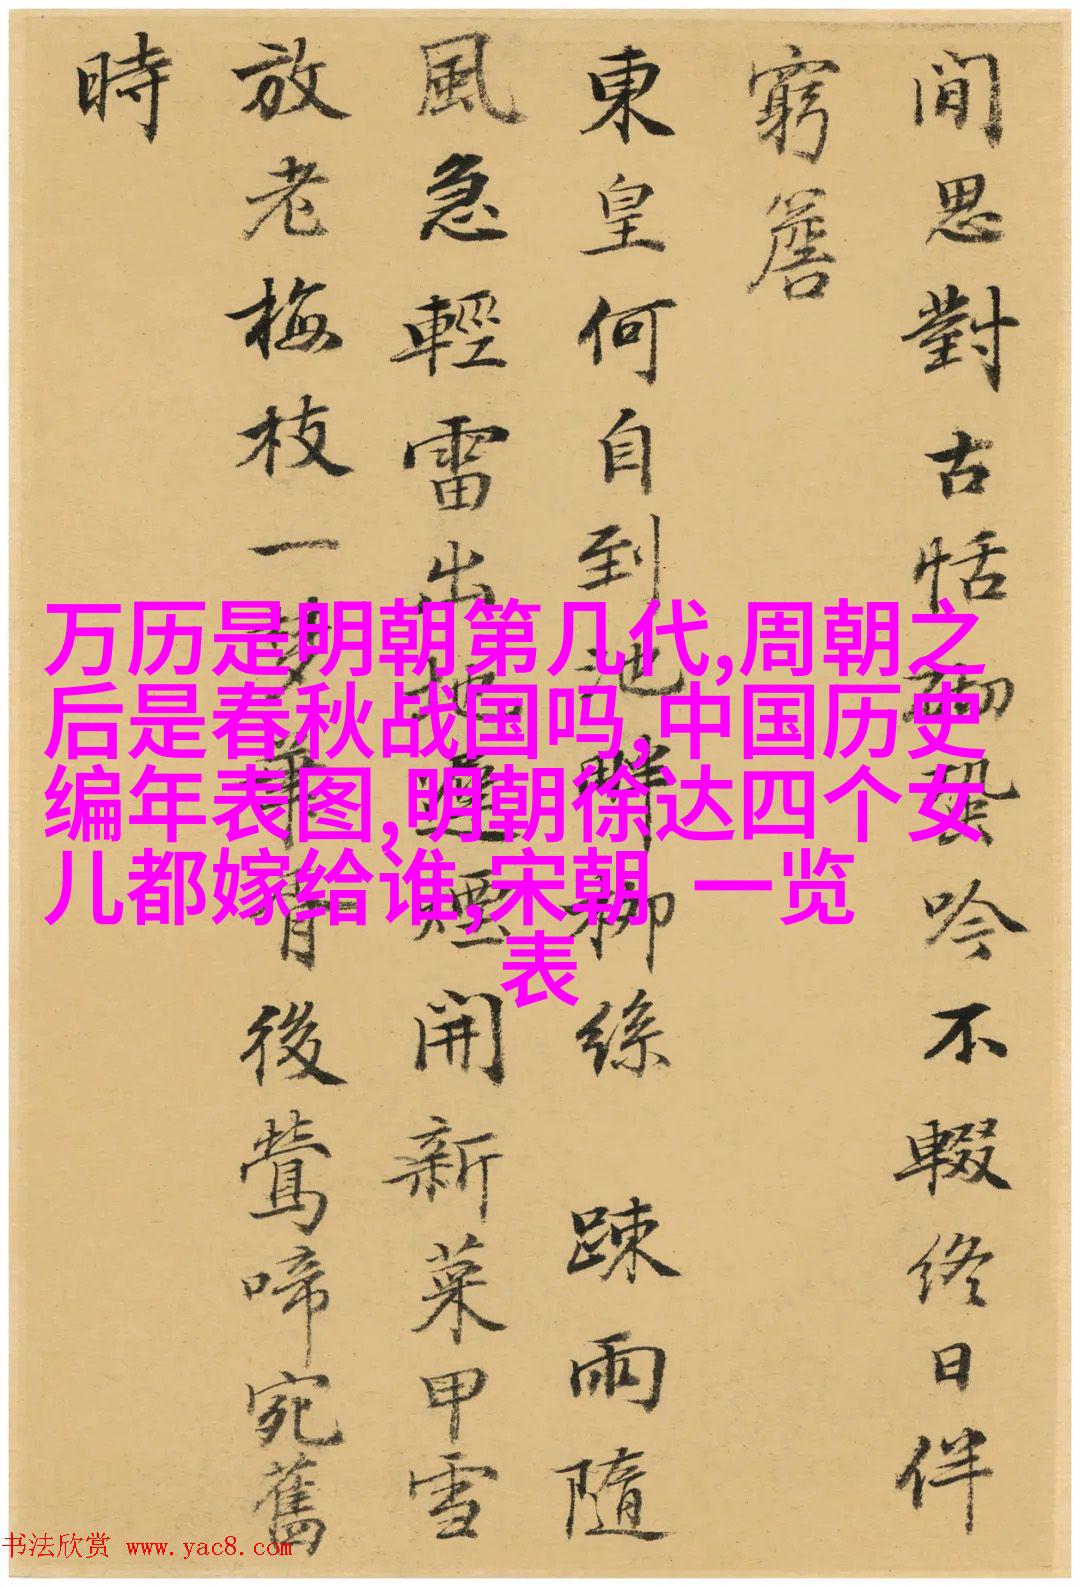 間思對古恬砌蛩吟不輟終日伴
窮簷
東皇何自到池畔柳絲疎雨隨
風急輕雷出地遲煙開新菜甲雪
放老梅枝一夢華胥後鶯啼宛舊
時
万历是明朝第几代,周朝之
后是春秋战国吗,中国历史
编年表图,明朝徐达四个女
儿都嫁给谁,宋朝 一览
表
书法欣赏 www.yac8.com